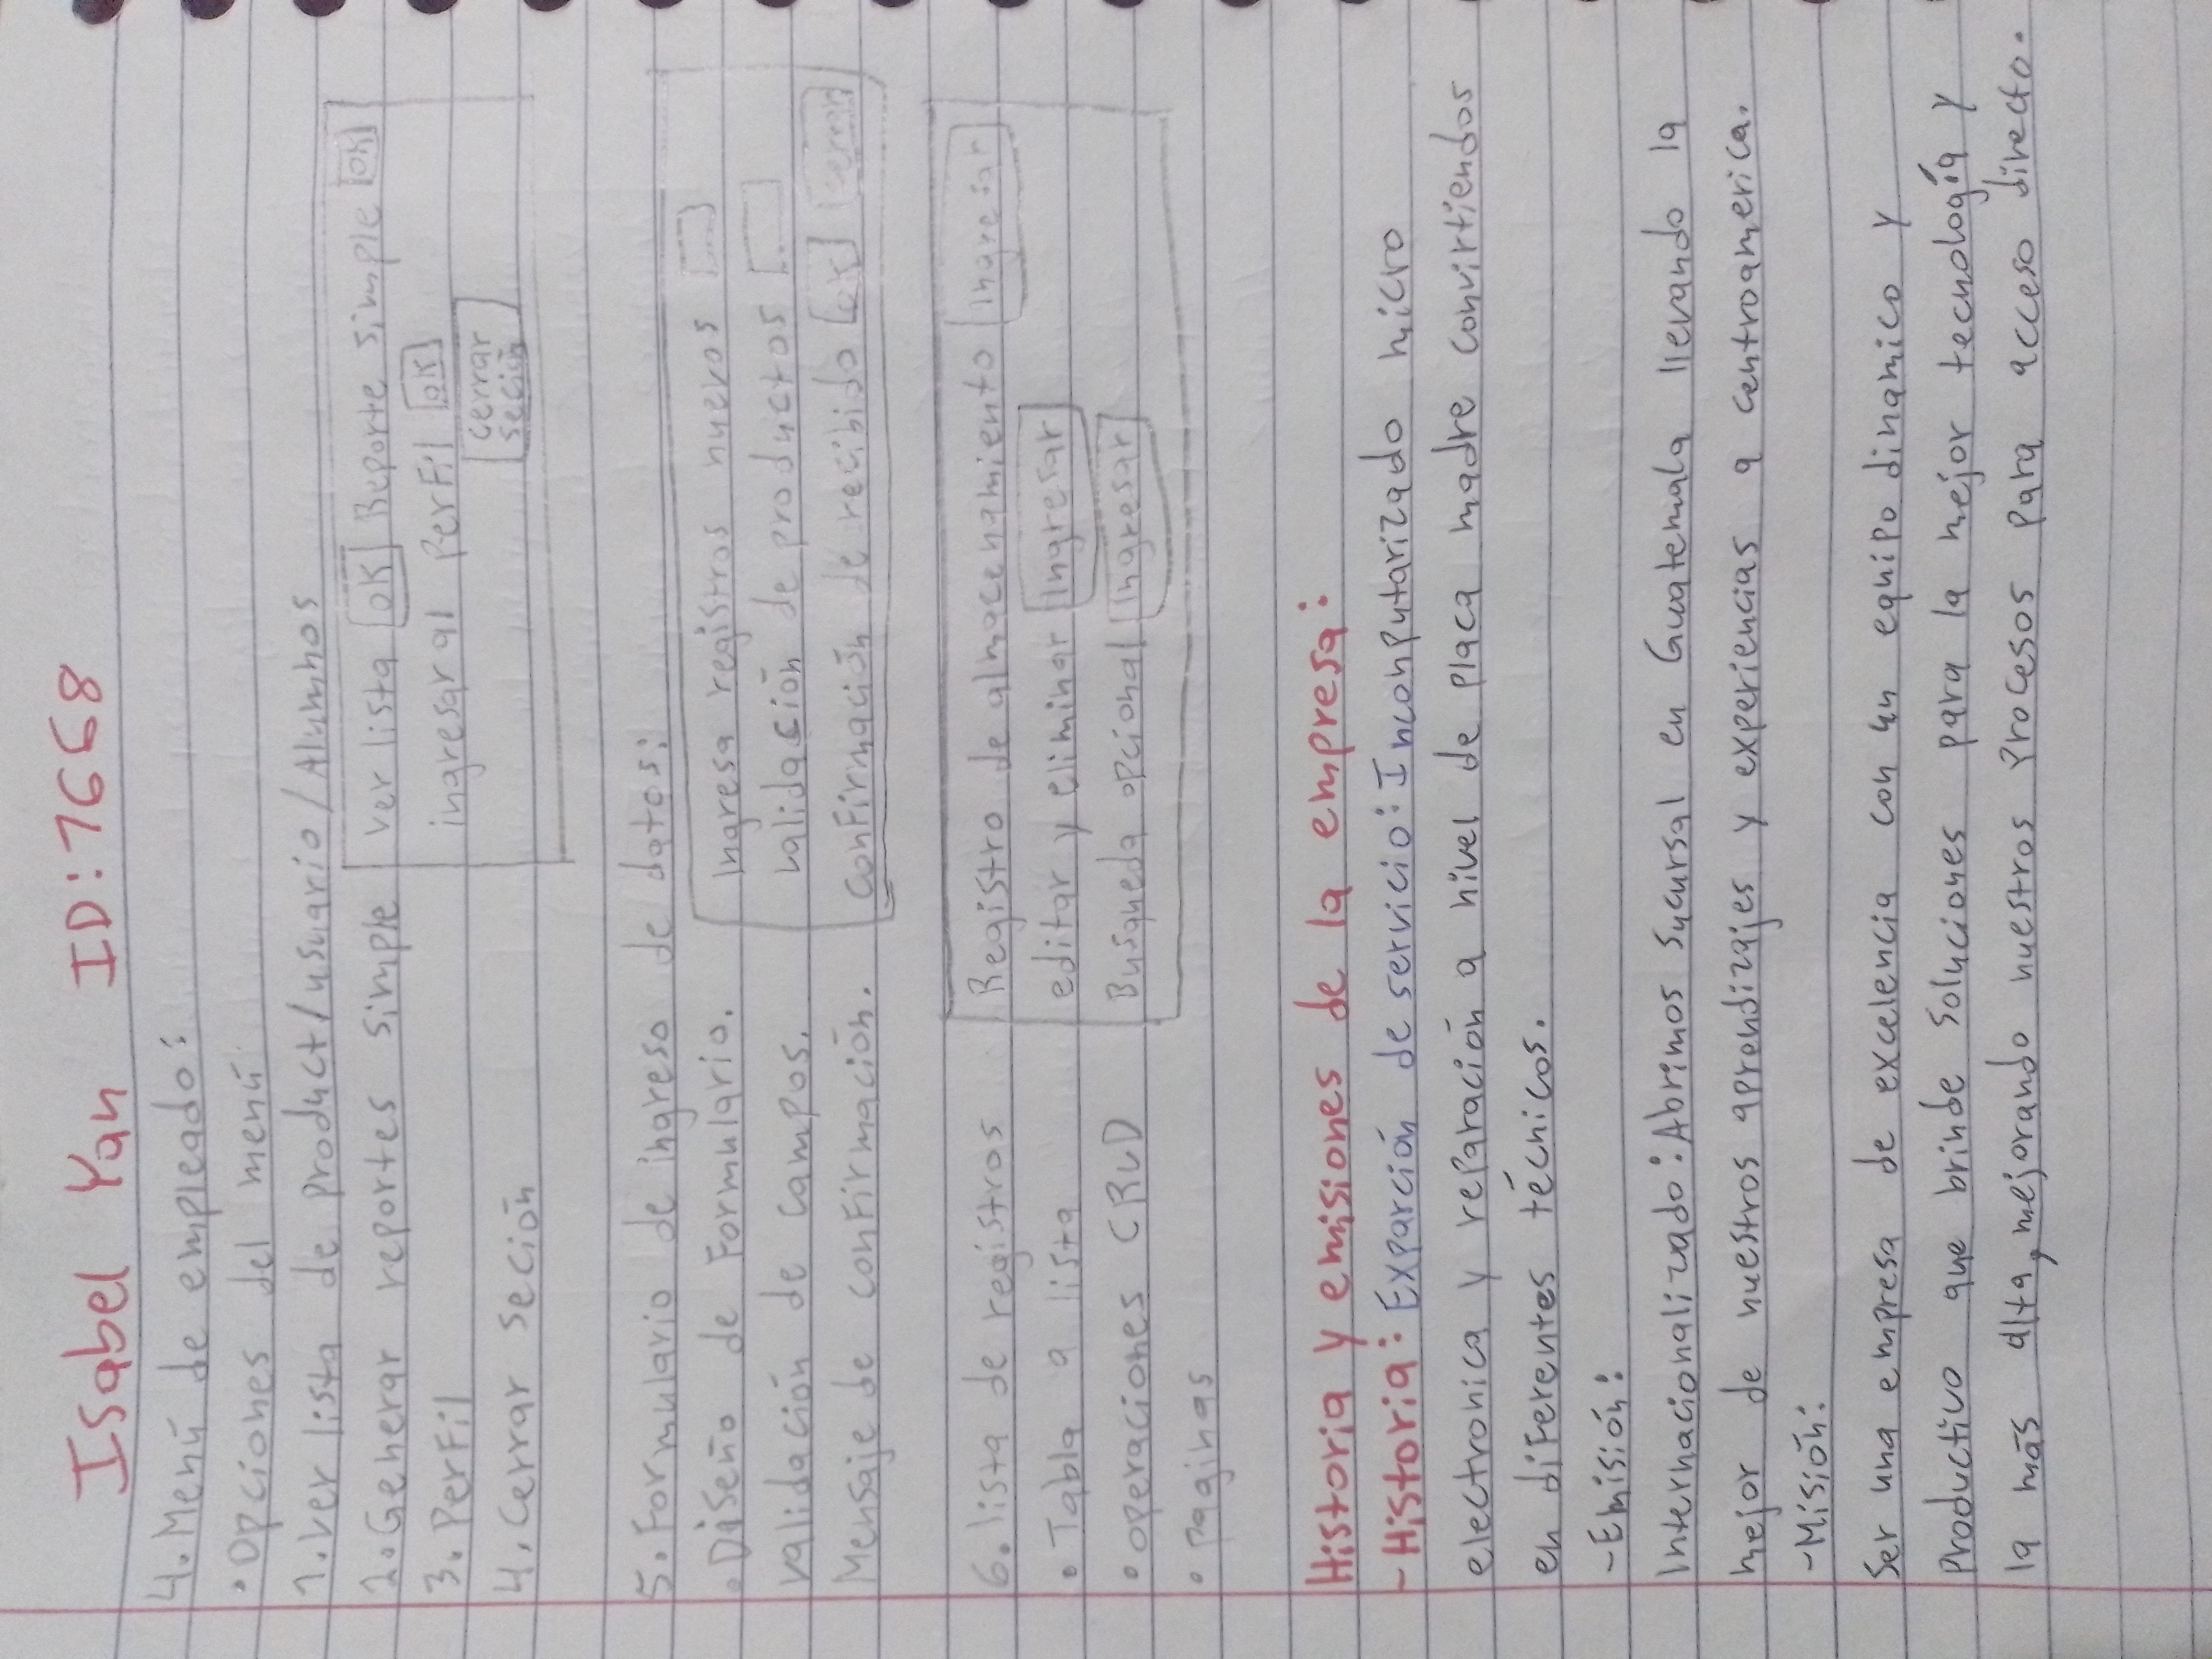 Isabel Yan ID: 7668
4. Menú de empleado:
• Opciones del menú
1. Ver lista de product/usuario/Alumnos
2. Generar reportes simple
3. Perfil
4. Cerrar seción
ver lista [OK] Reporte simple [OK]
ingresar al Perfil [OK]
cerrar
seción
5. Formulario de ingreso de datos:
• Diseño de Formulario.
validación de campos.
Mensaje de confirmación.
Ingresa registros nuevos [ ]
validación de productos [ ]
confirmación de recibido [OK]
6. lista de registros
• Tabla a lista
• operaciones CRUD
• Paginas
Registro de almacenamiento [Ingresar]
editar y eliminar [Ingresar]
Busqueda opcional [Ingresar]
Historia y emisiones de la empresa:
- Historia: Exparción de servicio: Incomputarizado micro
electronica y reparación a nivel de placa madre convirtiendos
en diferentes técnicos.
- Emisión:
Internacionalizado: Abrimos sucursal en Guatemala llevando la
mejor de nuestros aprendizajes y experiencias a centroamerica.
- Misión:
Ser una empresa de excelencia con un equipo dinamico y
Productivo que brinde soluciones para la mejor tecnología y
la más alta, mejorando nuestros Procesos para acceso directo.